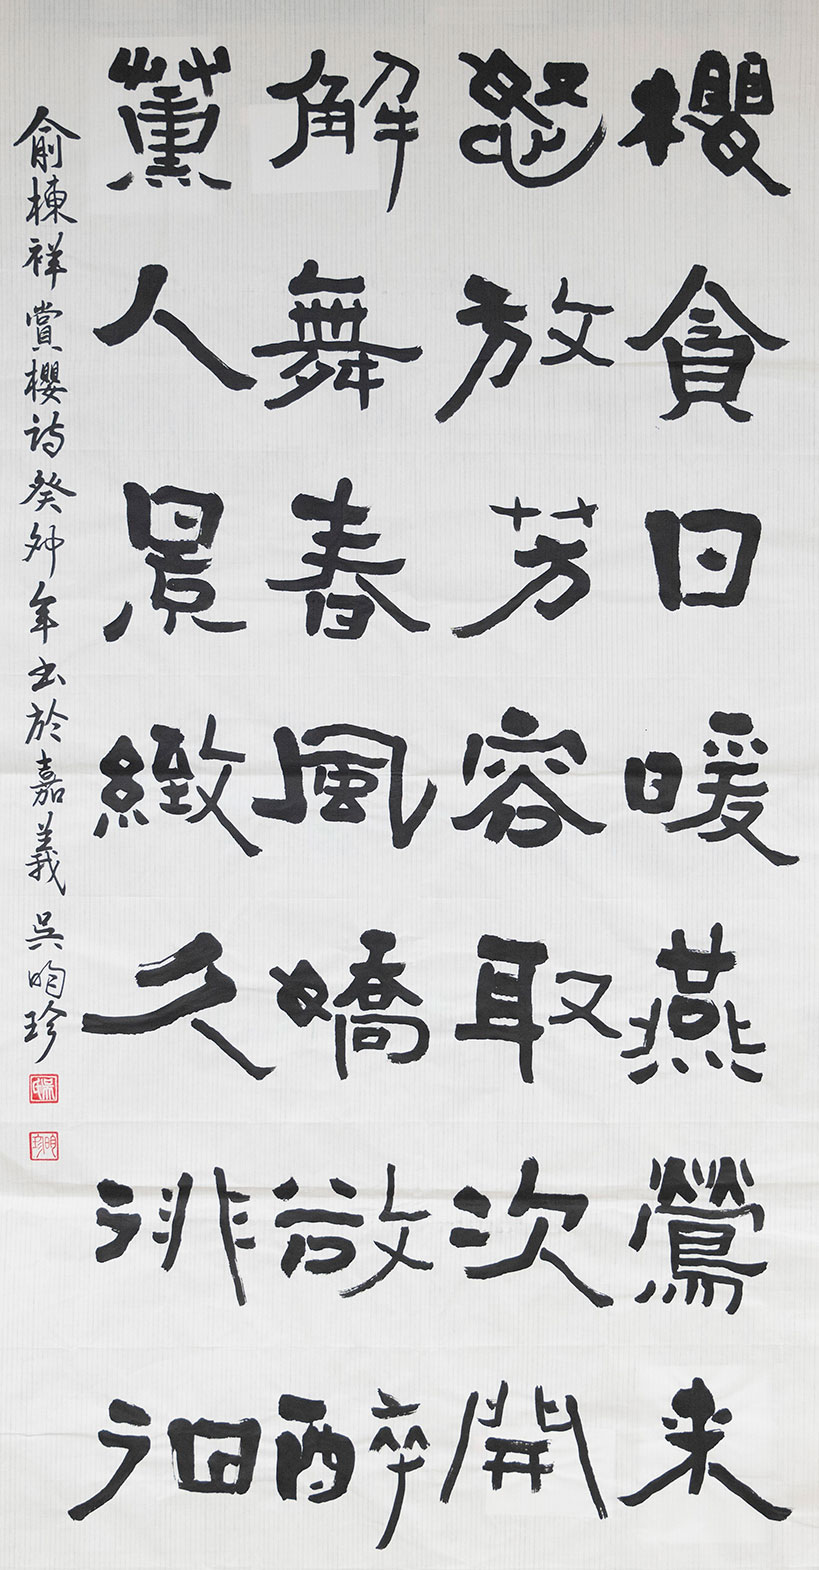 櫻貪日暖燕鶯來
怒放芳容取次開
解舞春風嬌欲醉
薰人景緻久徘徊
俞棟祥賞櫻詩癸卯年書於嘉義吳昀珍
昀珍